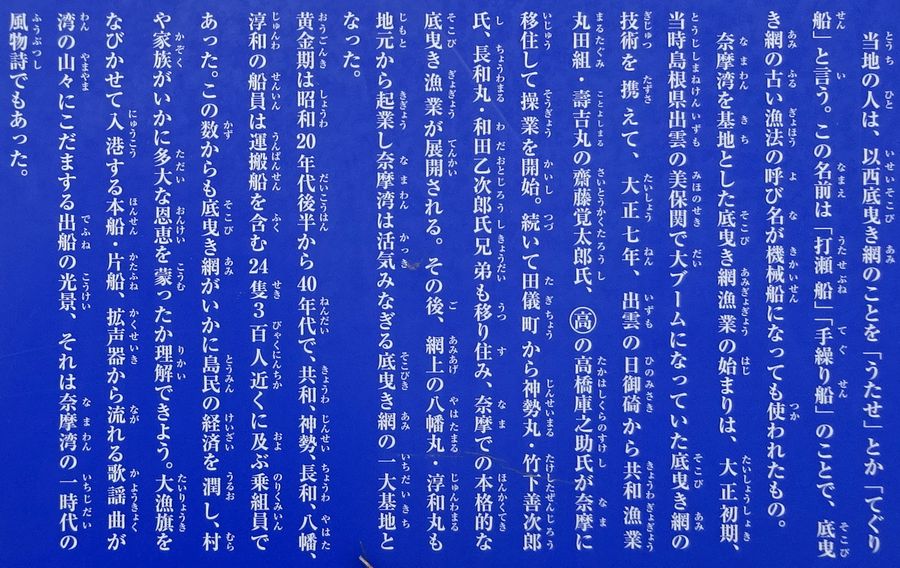 当地の人は、以西底曳き網のことを「うたせ」とか「てぐり
船」と言う。この名前は「打瀬船」「手繰り船」のことで、底曳
き網の古い漁法の呼び名が機械船になっても使われたもの。
奈摩湾を基地とした底曳き網漁業の始まりは、大正初期、
当時島根県出雲の美保関で大ブームになっていた底曳き網の
技術を携えて、大正七年、出雲の日御碕から共和漁業
丸田組・壽吉丸の齋藤覚太郎氏、㊤の高橋庫之助氏が奈摩に
移住して操業を開始。続いて田儀町から神勢丸・竹下善次郎
氏、長和丸・和田乙次郎氏兄弟も移り住み、奈摩での本格的な
底曳き漁業が展開される。その後、網上の八幡丸・淳和丸も
地元から起業し奈摩湾は活気みなぎる底曳き網の一大基地と
なった。
黄金期は昭和20年代後半から40年代で、共和、神勢、長和、八幡、
淳和の船員は運搬船を含む24隻3百人近くに及ぶ乗組員で
あった。この数からも底曳き網がいかに島民の経済を潤し、村
や家族がいかに多大な恩恵を蒙ったか理解できよう。大漁旗を
なびかせて入港する本船・片船、拡声器から流れる歌謡曲が
湾の山々にこだまする出船の光景、それは奈摩湾の一時代の
風物詩でもあった。